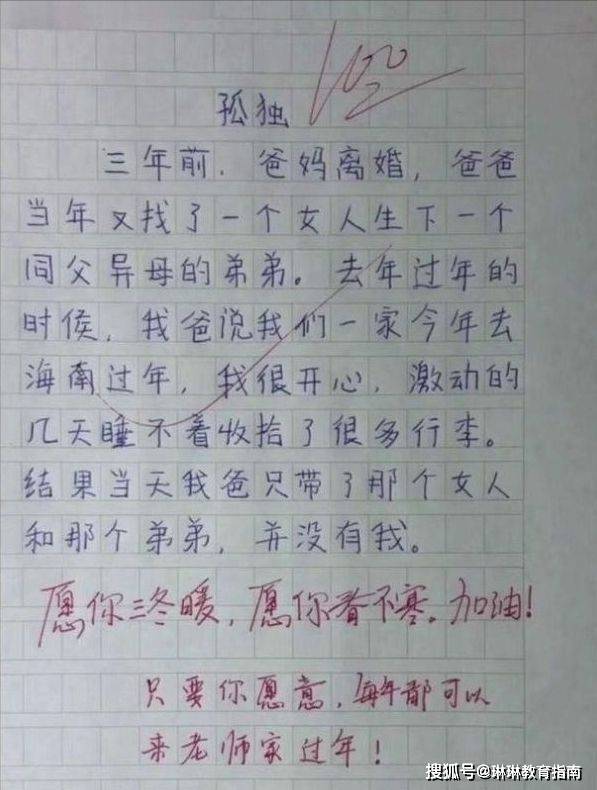 100
孤独
三年前，爸妈离婚，爸爸
当年又找了一个女人生下一个
同父异母的弟弟。去年过年的
时候，我爸说我们一家今年去
海南过年，我很开心，激动的
几天睡不着收拾了很多行李。
结果当天我爸只带了那个女人
和那个弟弟，并没有我。
愿你三冬暖，愿你春不寒。加油！
只要你愿意，每年都可以
来老师家过年！
搜狐号@琳琳教育指南